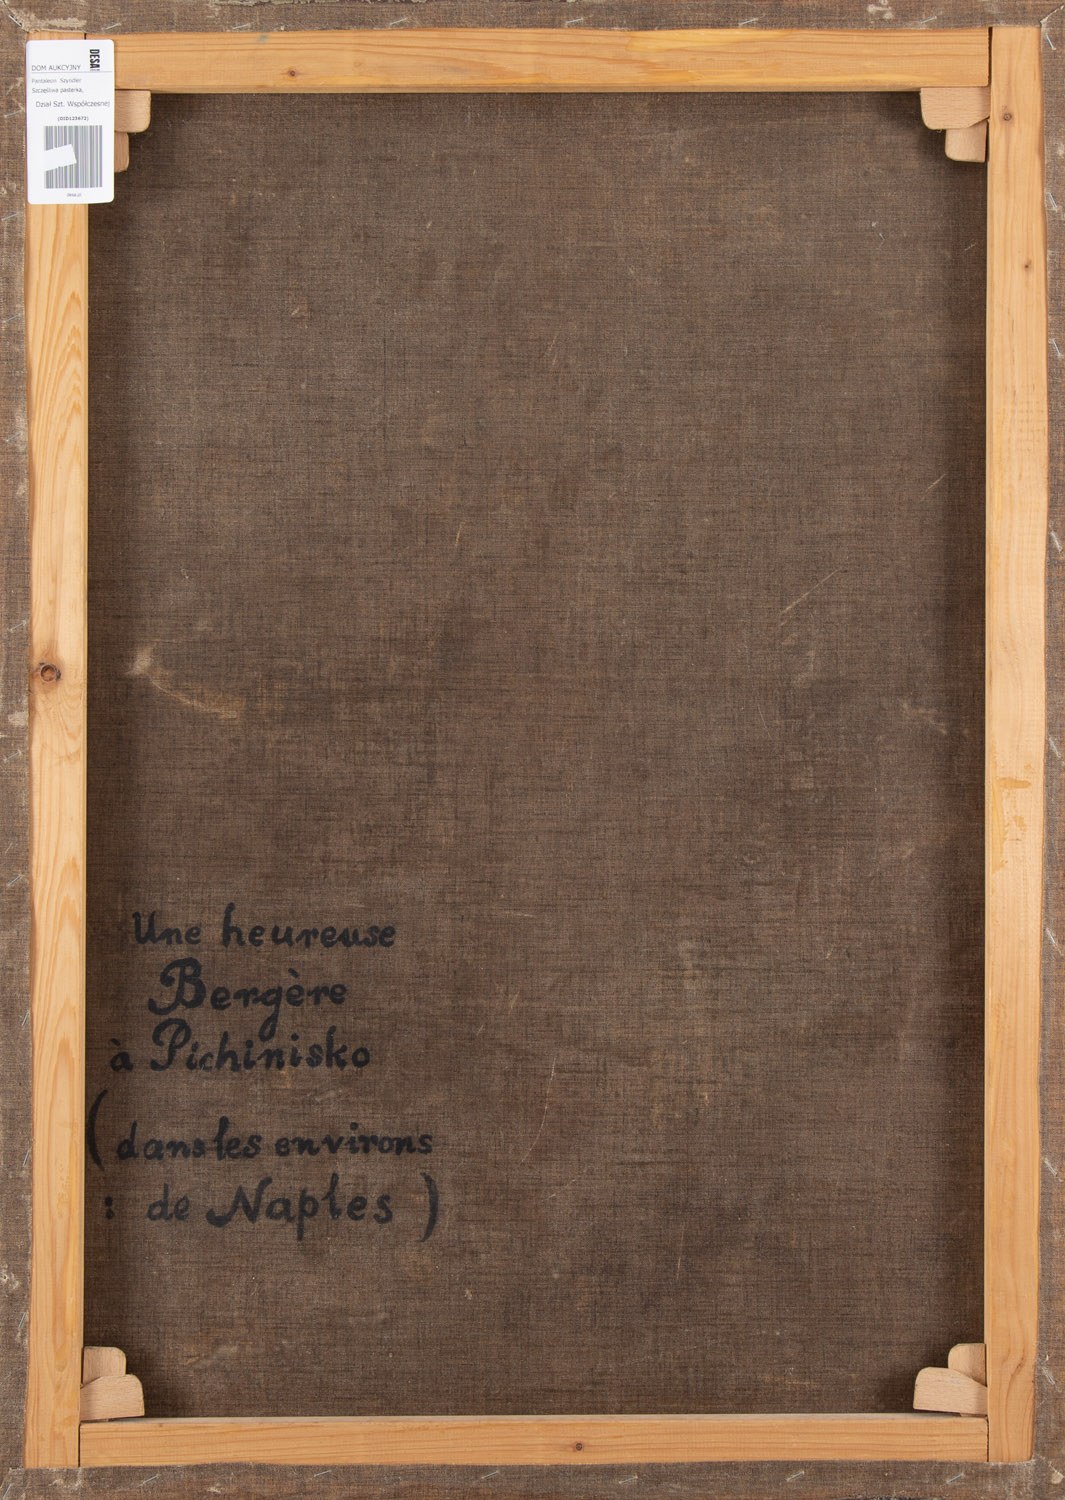 DESA
DOM AUKCYJNY
Pantaleon Szyndler
Szczęśliwa pasterka,
Dział Szt. Współczesnej
Une heureuse
Bergère
à Pichinisko
(dans les environs
: de Naples)